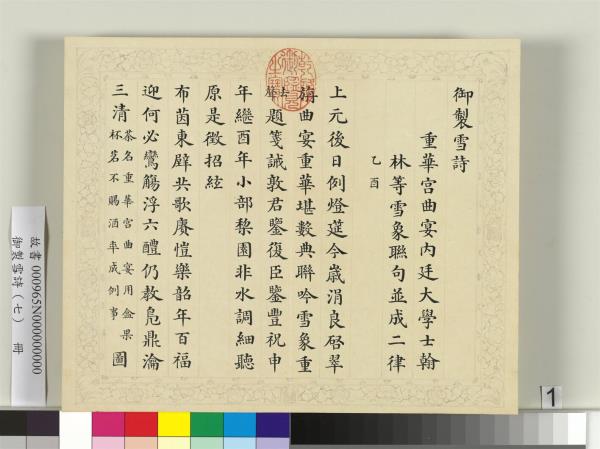 御製雪詩
重華宮曲宴內廷大學士翰
林等雪象聯句並成二律
乙酉
上元後日例燈筵今歲涓良啓翠
旃曲宴重華堪數典聯吟雪象重
去聲題箋誠敦君鑒復臣鑒豐祝申
年繼酉年小部棃園非水調細聽
原是徵招絃
布茵東壁共歌賡愷樂韶年百福
迎何必鸞觴浮六醴仍教鳧鼎瀹
三清茶名重華宮曲宴用盒果杯茗不賜酒率成例事圖
故書 000965N000000000
御製雪詩（七） 冊
1